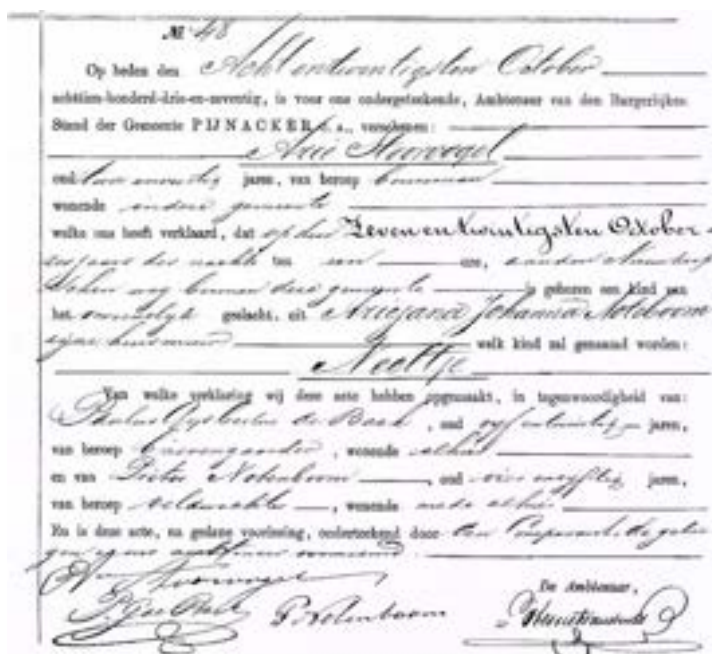 № 48
Op heden den Acht en twintigsten October
achttien-honderd-drie-en-zeventig, is voor ons ondergeteekende, Ambtenaar van den Burgerlijken
Stand der Gemeente PIJNACKER c. a., verschenen:
Arie Stoorvogel
oud twee en veertig jaren, van beroep bouwman
wonende in deze gemeente
welke ons heeft verklaard, dat op den Zeven en twintigsten October
dezes jaars des nachts ten een ure, aan den
weg binnen deze gemeente is geboren een kind van
het vrouwelijk geslacht, uit Ariejana Johanna Noteboom
zijne huisvrouw welk kind zal genaamd worden:
Neeltje
Van welke verklaring wij deze acte hebben opgemaakt, in tegenwoordigheid van:
Paulus Gysbertus de Back, oud vyf en twintig jaren,
van beroep, wonende alhier
en van Pieter Notenboom, oud vier en vyftig jaren,
van beroep veldwachter, wonende mede alhier
En is deze acte, na gedane voorlezing, onderteekend door den Comparant, de getui
gen en ons ambtenaar voornoemd.
A Stoorvogel
P. G. de Back P. Notenboom
De Ambtenaar,